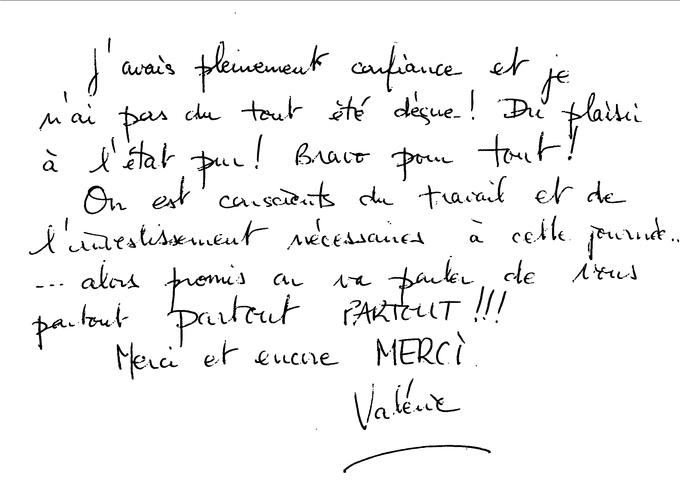 J'avais pleinement confiance et je
n'ai pas du tout été déçue ! Du plaisir
à l'état pur ! Bravo pour tout !
On est conscients du travail et de
l'investissement nécessaires à cette journée..
... alors promis on va parler de vous
partout partout PARTOUT !!!
Merci et encore MERCI
Valérie